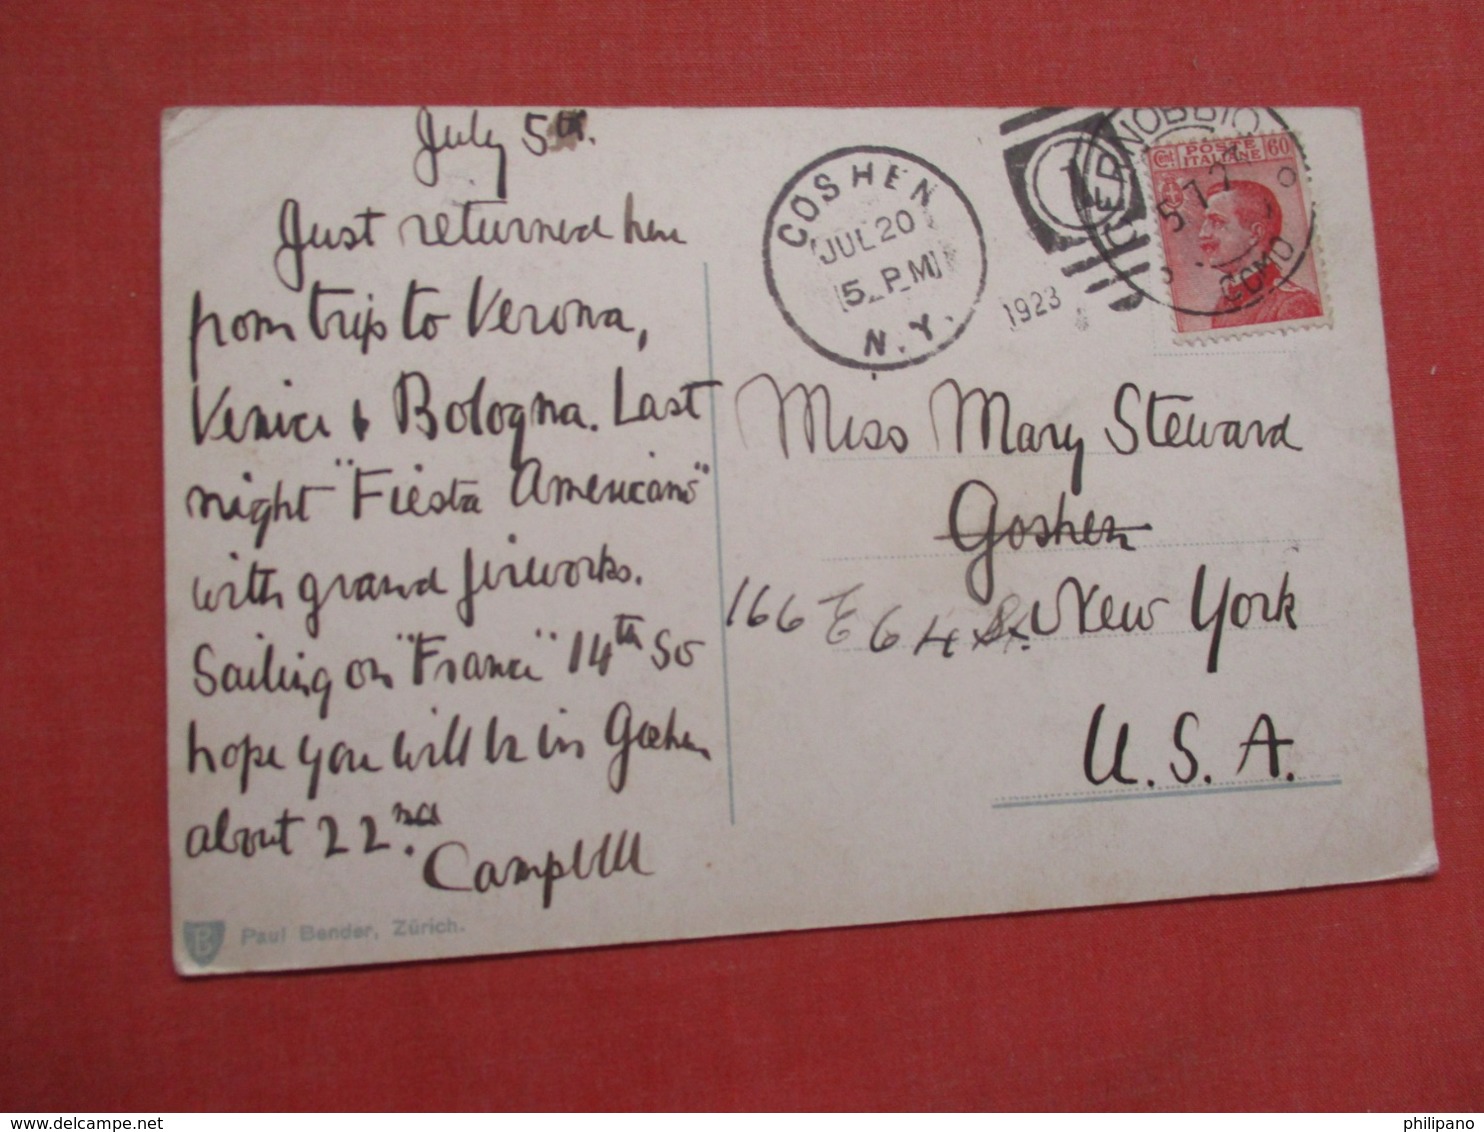 July 5th.
Just returned here
from trip to Verona,
Venice & Bologna. Last
night "Fiesta Americana"
with grand fireworks.
Sailing on "France" 14th so
hope you will be in Goshen
about 22nd.
Campbell
Paul Bender, Zürich.
B
GOSHEN
JUL 20
5 PM
N.Y.
1923
1
CERNOBBIO
5.7.23
COMO
Cent. POSTE 60
ITALIANE
Miss Mary Steward
Goshen
166 E 64 St. New York
U.S.A.
delcampe.net
philipano